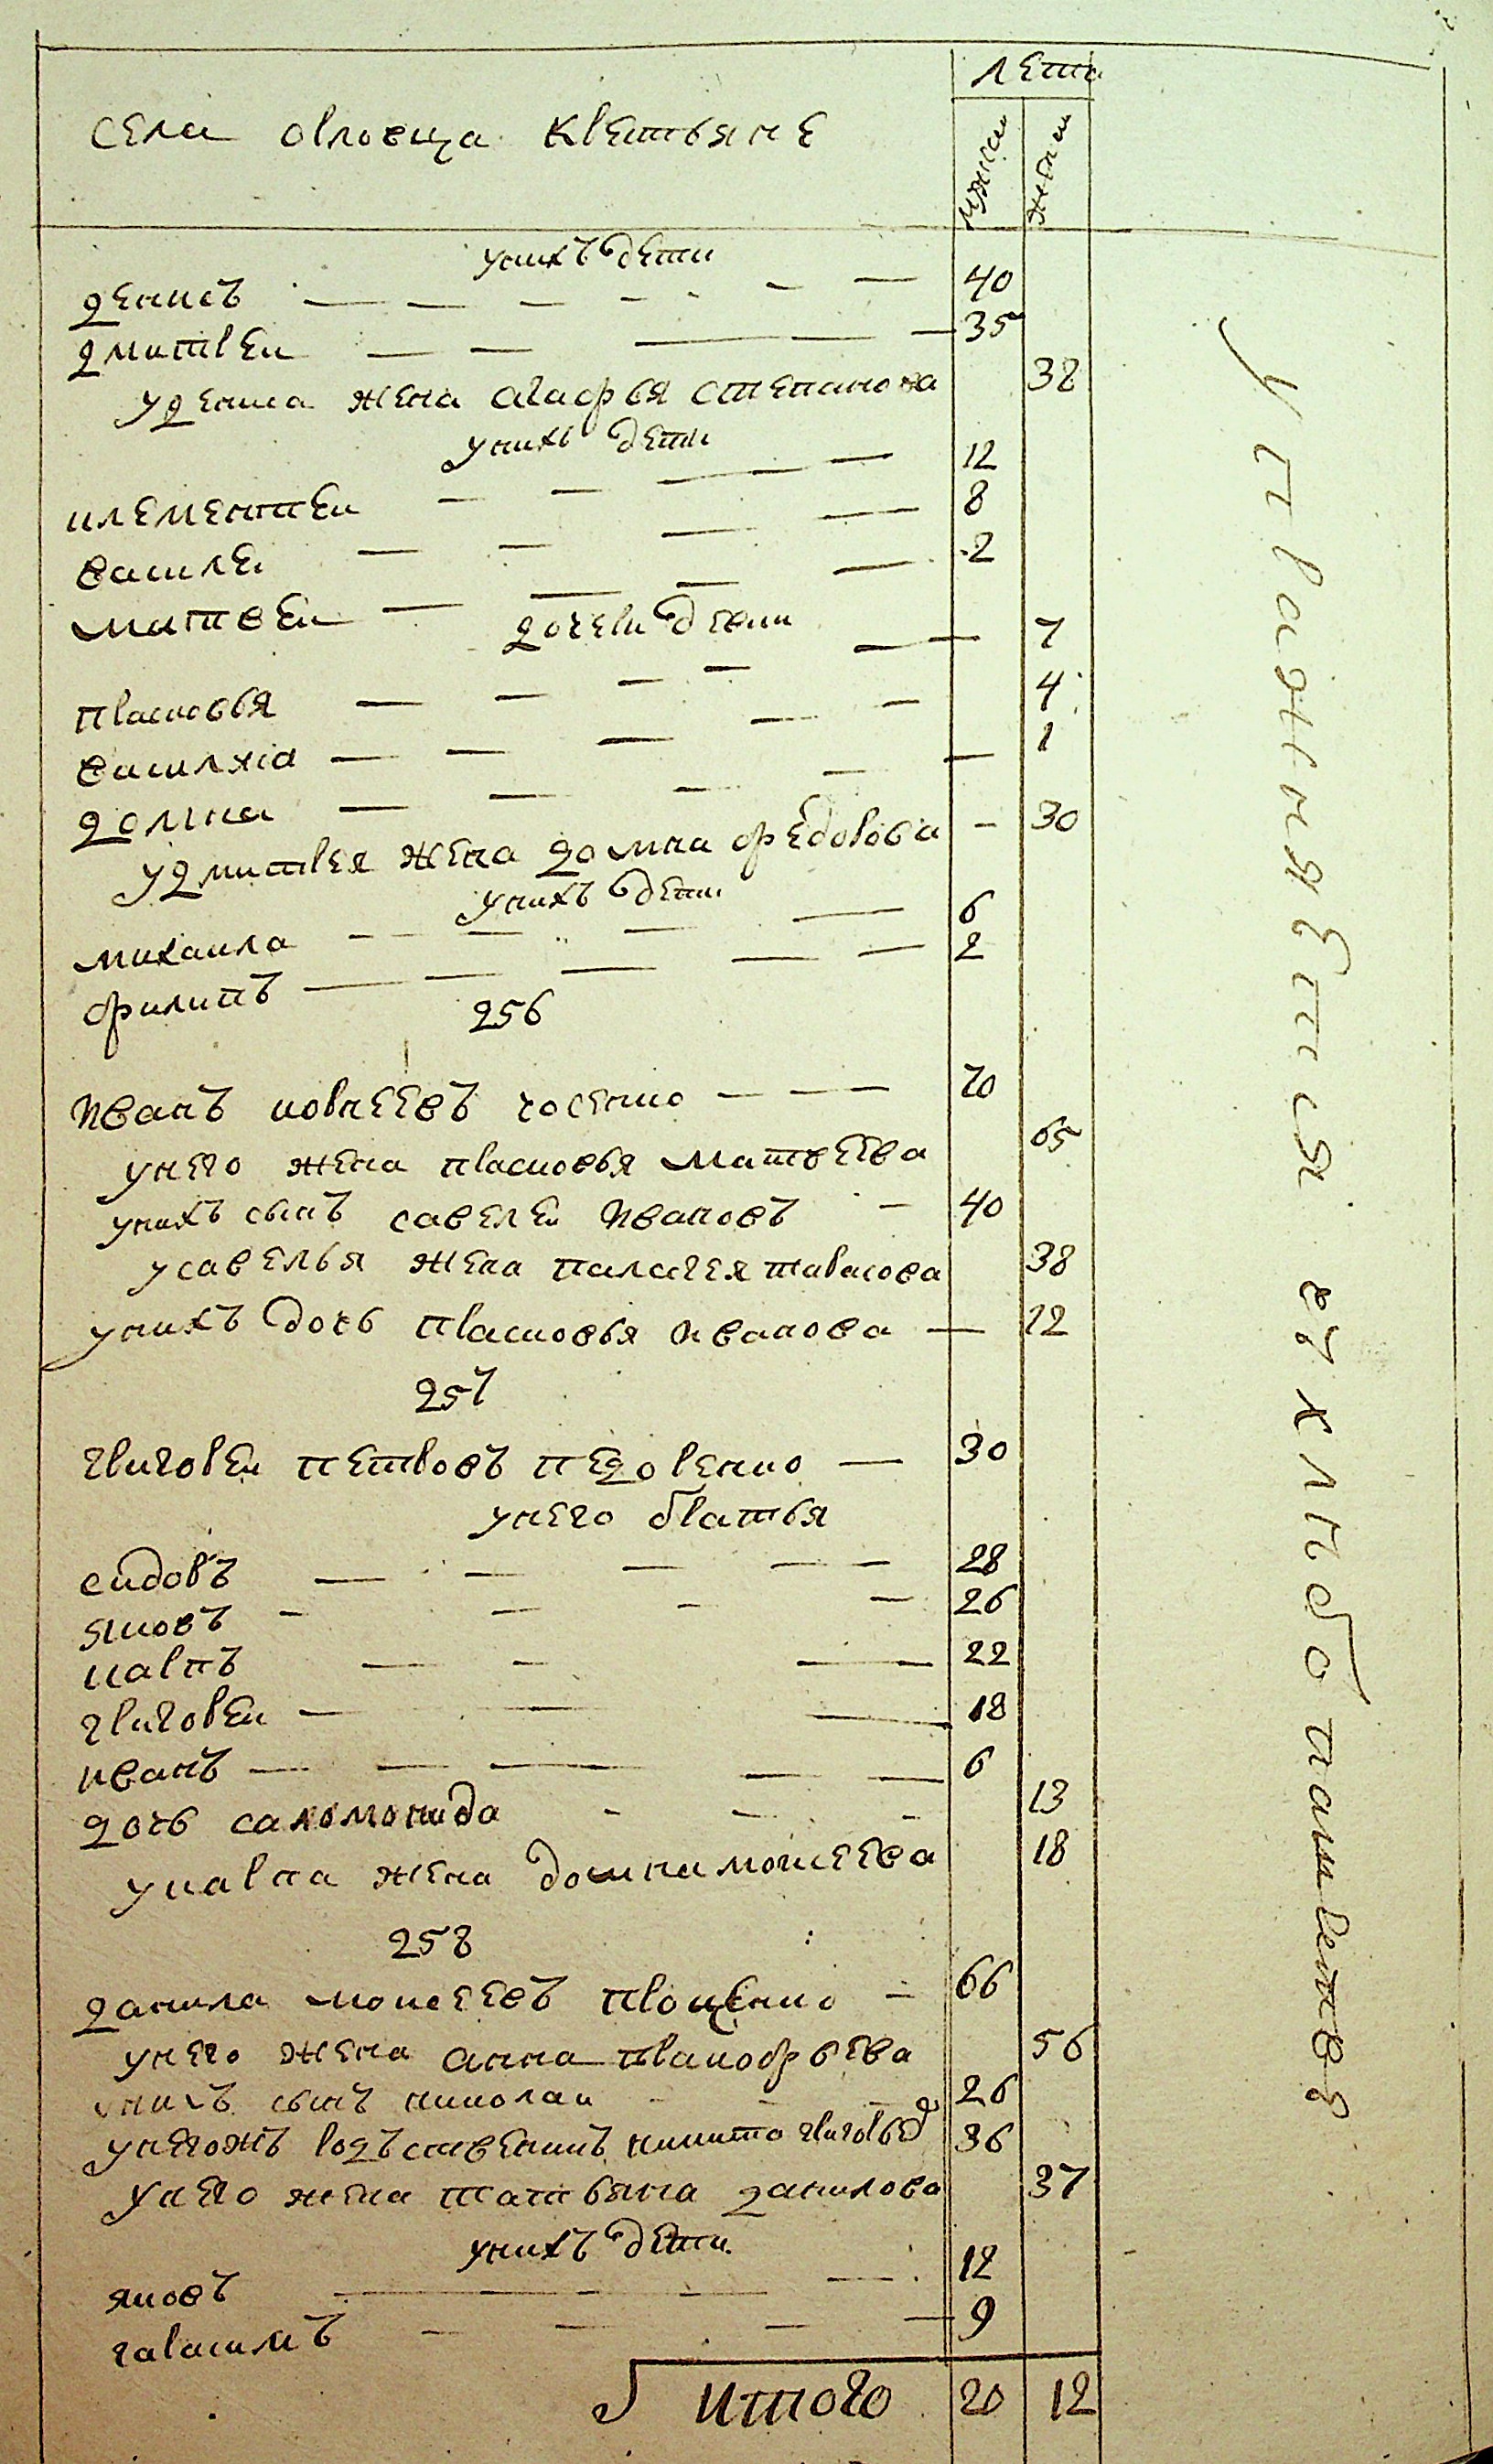 лета
села овлоеща крестьяне
мужск женск
у них дети
денисъ 40
дмитреи 35
у дениса жена агафья степанова 38
у них дети
клементеи 12
василеи 8
матвеи 2
дочери девки
прасковья 7
василиса 4
домна 1
у дмитрея жена домна федорова 30
у нихъ дети
михаила 6
филипъ 2
256
иванъ корнеевъ 70
у него жена прасковья матвеева 65
у нихъ сынъ савелеи ивановъ 40
у савелья жена палагея тарасова 38
у нихъ дочь прасковья иванова 12
257
григореи петровъ 30
у него братья
сидоръ 28
яковъ 26
карпъ 22
григореи 18
иванъ 6
дочь саломонида 13
у карпа жена домна моисеева 18
258
данила моисеевъ 66
у него жена анна пракофьева 56
у нихъ сынъ николаи 26
у негожъ родственникъ никита григорьевъ 36
у него жена татьяна данилова 37
у нихъ дети
яковъ 12
гарасимъ 9
итого 20 12
упражняется въ хлебопашестве